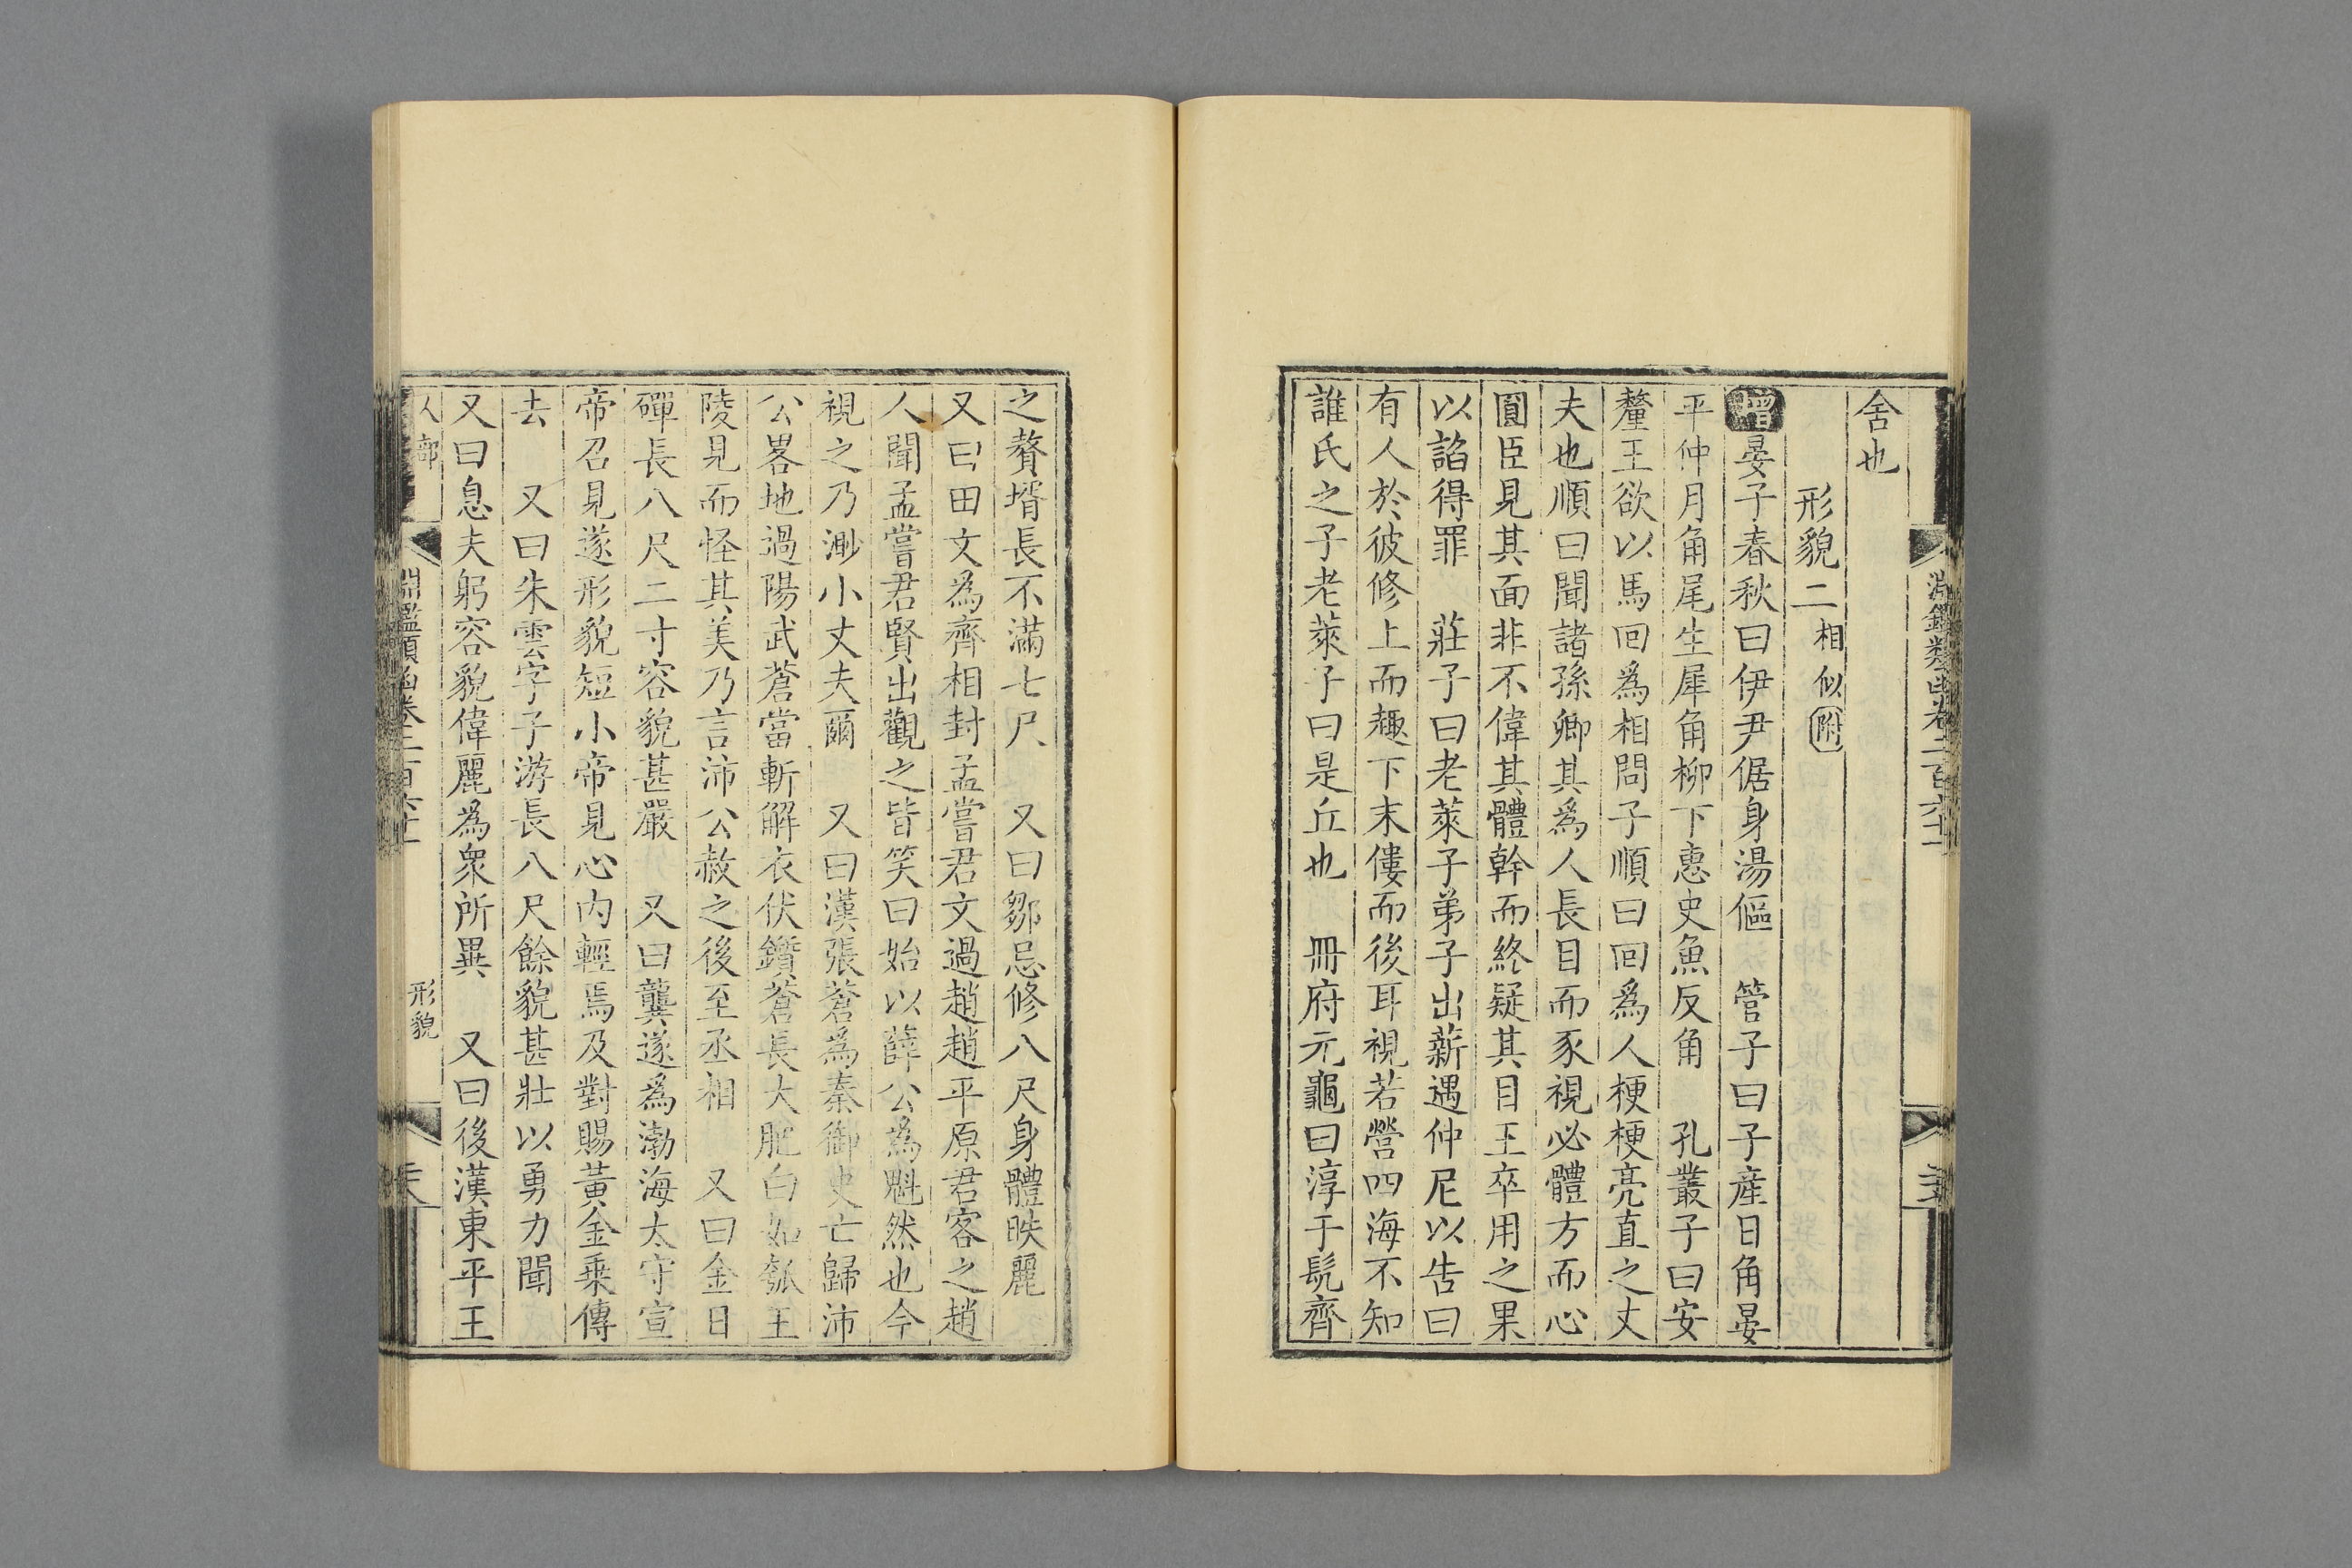 淵鑑類函卷二百六十一
舍也
形貌二相似附
增晏子春秋曰伊尹倨身湯傴　管子曰子產日角晏
平仲月角尾生犀角柳下惠史魚反角　孔叢子曰安
釐王欲以馬回爲相問子順曰回爲人梗梗亮直之丈
夫也順曰聞諸孫卿其爲人長目而豕視必體方而心
圓臣見其面非不偉其體幹而終疑其目王卒用之果
以諂得罪　莊子曰老萊子弟子出薪遇仲尼以告曰
有人於彼修上而趣下末僂而後耳視若營四海不知
誰氏之子老萊子曰是丘也　冊府元龜曰淳于髡齊
之贅壻長不滿七尺　又曰鄒忌修八尺身體昳麗
又曰田文爲齊相封孟嘗君文過趙趙平原君客之趙
人聞孟嘗君賢出觀之皆笑曰始以薛公爲魁然也今
視之乃渺小丈夫爾　又曰漢張蒼爲秦御史亡歸沛
公畧地過陽武蒼當斬解衣伏鑕蒼長大肥白如瓠王
陵見而怪其美乃言沛公赦之後至丞相　又曰金日
磾長八尺二寸容貌甚嚴　又曰龔遂爲渤海太守宣
帝召見遂形貌短小帝見心內輕焉及對賜黃金乘傳
去　又曰朱雲字子游長八尺餘貌甚壯以勇力聞
又曰息夫躬容貌偉麗爲衆所異　又曰後漢東平王
人部　淵鑑類函卷二百六十一　形貌